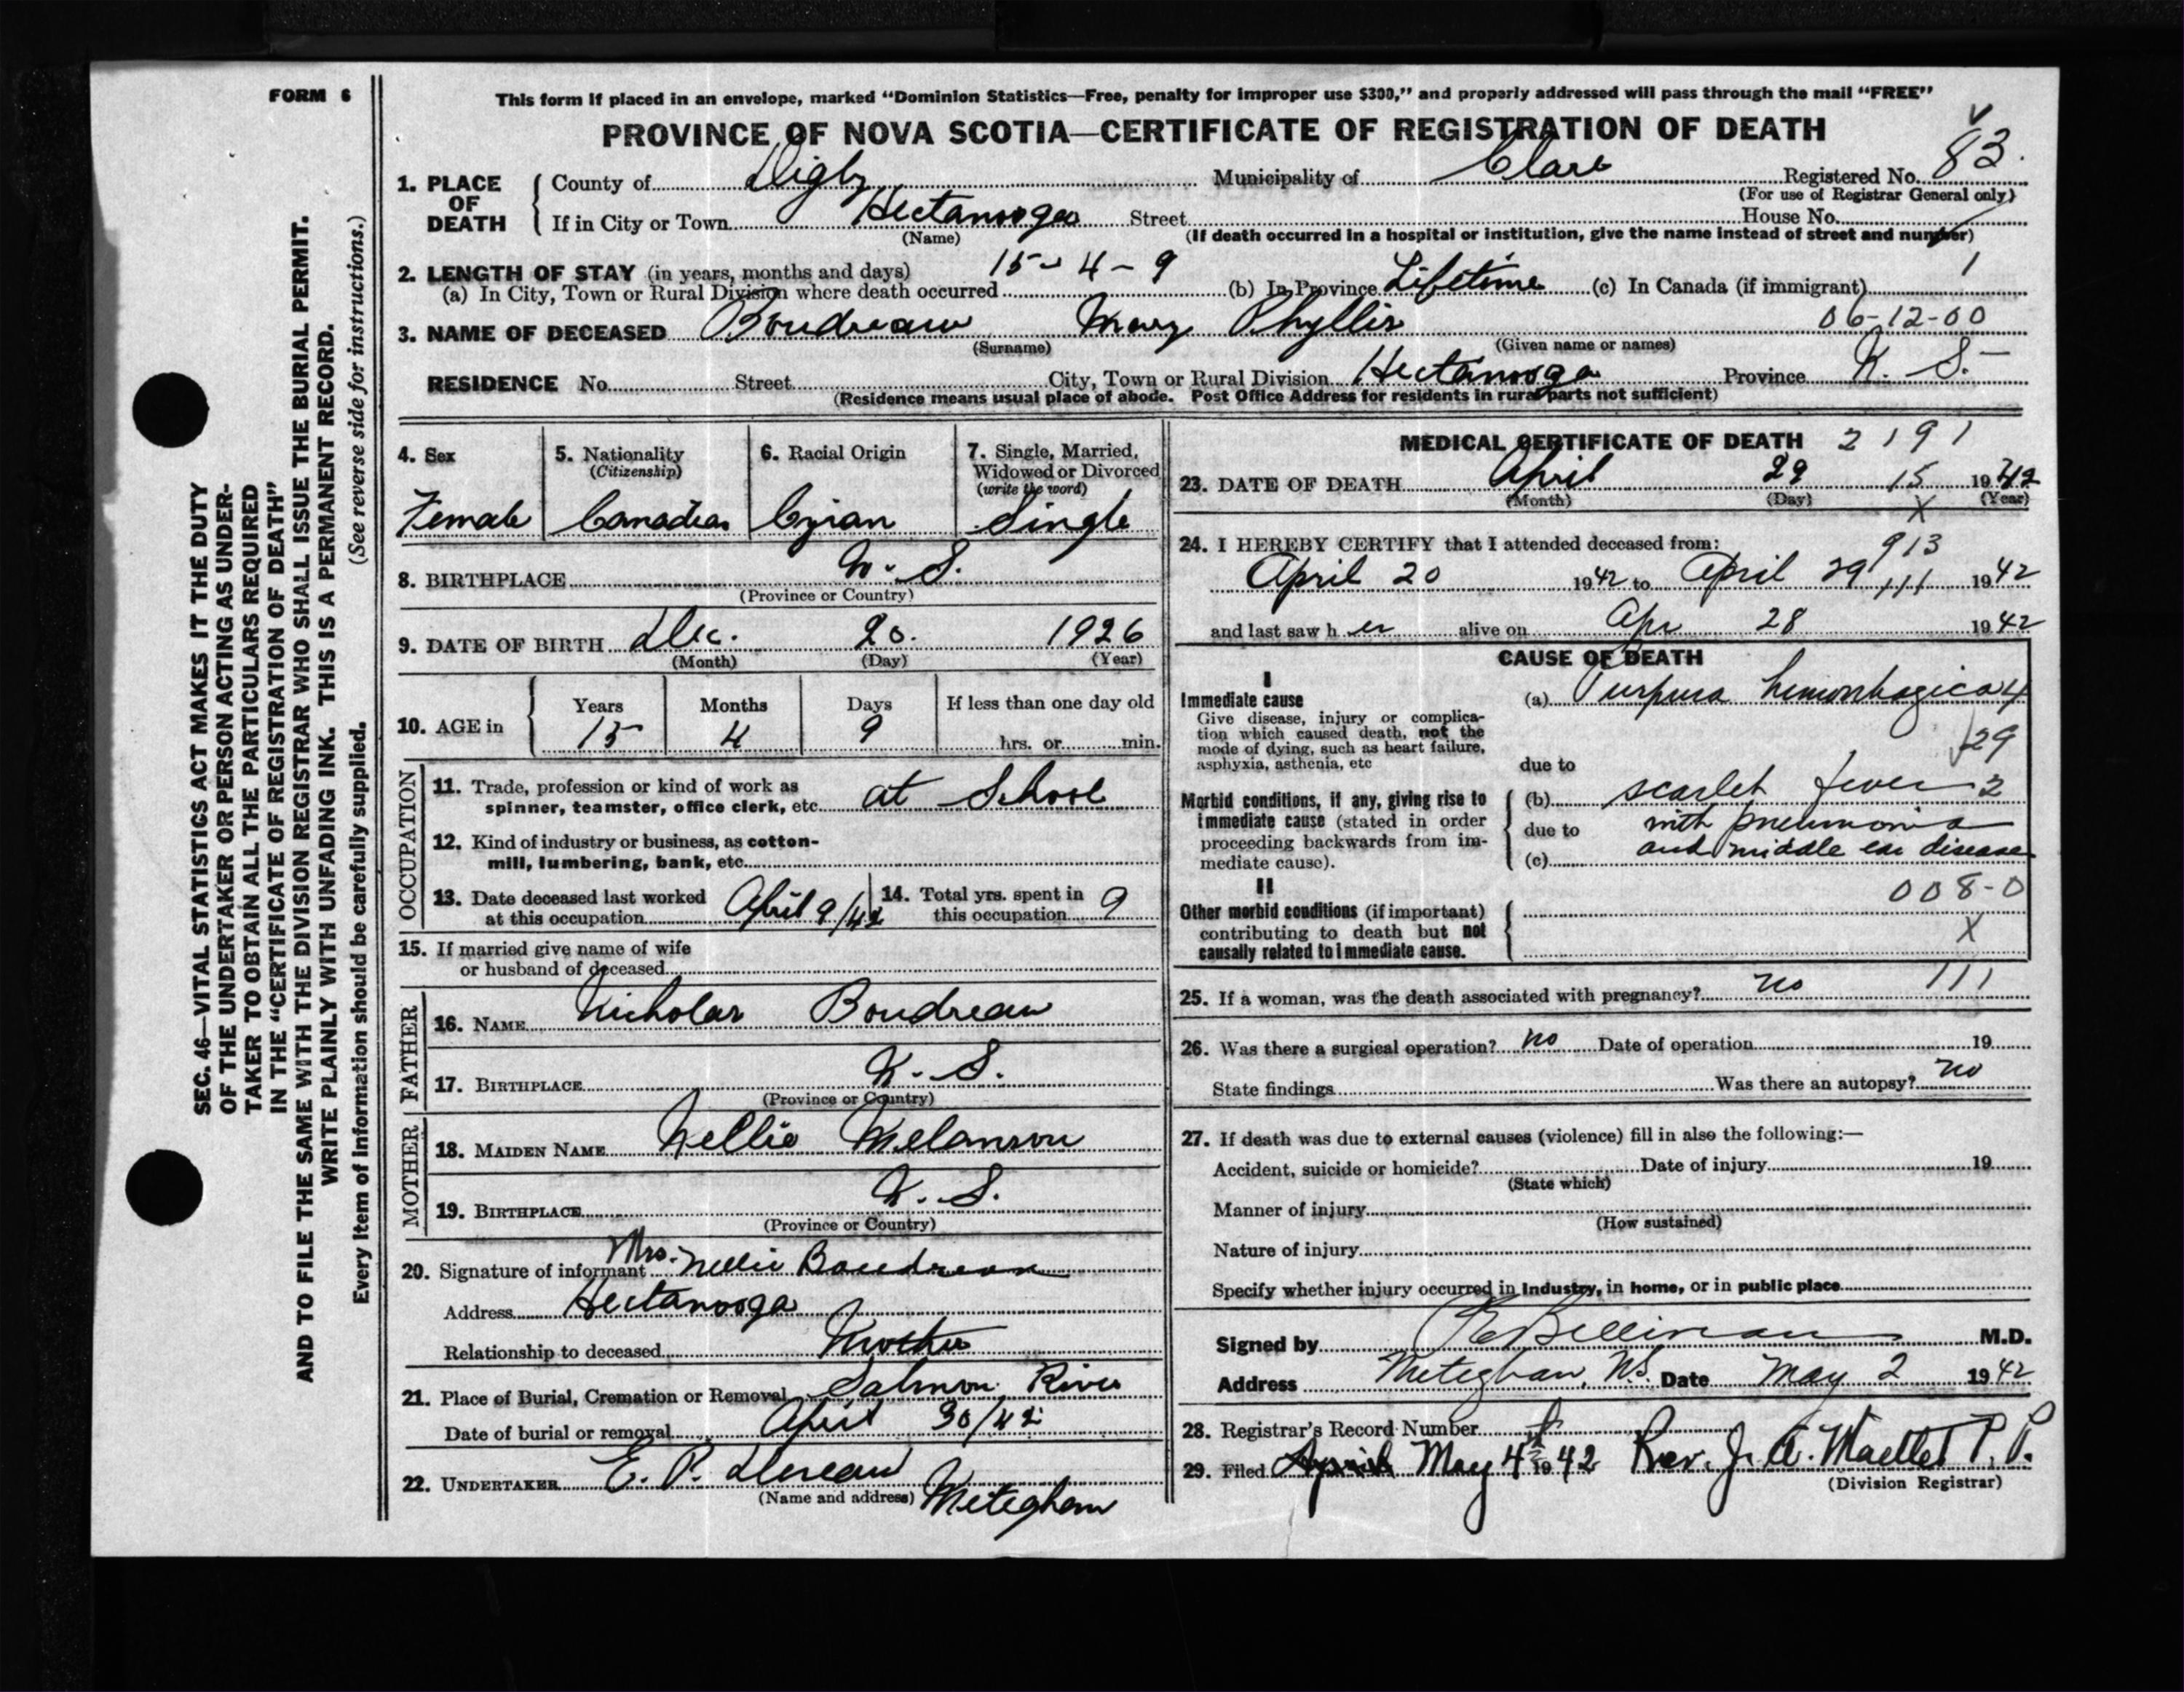 FORM 6
This form if placed in an envelope, marked “Dominion Statistics—Free, penalty for improper use $300,” and properly addressed will pass through the mail “FREE”
PROVINCE OF NOVA SCOTIA—CERTIFICATE OF REGISTRATION OF DEATH
SEC. 46—VITAL STATISTICS ACT MAKES IT THE DUTY
OF THE UNDERTAKER OR PERSON ACTING AS UNDER-
TAKER TO OBTAIN ALL THE PARTICULARS REQUIRED
IN THE “CERTIFICATE OF REGISTRATION OF DEATH”
AND TO FILE THE SAME WITH THE DIVISION REGISTRAR WHO SHALL ISSUE THE BURIAL PERMIT.
WRITE PLAINLY WITH UNFADING INK. THIS IS A PERMANENT RECORD.
Every item of information should be carefully supplied. (See reverse side for instructions.)
1. PLACE OF DEATH County of Digby Municipality of Clare Registered No. 83.
(For use of Registrar General only)
If in City or Town Hectanooga Street House No.
(Name) (If death occurred in a hospital or institution, give the name instead of street and number)
2. LENGTH OF STAY (in years, months and days) 15 - 4 - 9
(a) In City, Town or Rural Division where death occurred (b) In Province Lifetime (c) In Canada (if immigrant) 1
3. NAME OF DECEASED Boudreau Mary Phyllis 06-12-00
(Surname) (Given name or names)
RESIDENCE No. Street City, Town or Rural Division Hectanooga Province N. S.
(Residence means usual place of abode. Post Office Address for residents in rural parts not sufficient)
4. Sex 5. Nationality 6. Racial Origin 7. Single, Married,
(Citizenship) Widowed or Divorced
(write the word)
Female Canadian Single
8. BIRTHPLACE N. S.
(Province or Country)
9. DATE OF BIRTH Dec. 20. 1926
(Month) (Day) (Year)
10. AGE in Years Months Days If less than one day old
15 4 9 hrs. or min.
OCCUPATION
11. Trade, profession or kind of work as
spinner, teamster, office clerk, etc. at School
12. Kind of industry or business, as cotton-
mill, lumbering, bank, etc.
13. Date deceased last worked 14. Total yrs. spent in
at this occupation April 9/42 this occupation 9
15. If married give name of wife
or husband of deceased
FATHER
16. NAME Nicholas Boudreau
17. BIRTHPLACE N. S.
(Province or Country)
MOTHER
18. MAIDEN NAME Nellie Melanson
19. BIRTHPLACE N. S.
(Province or Country)
20. Signature of informant Mrs. Nellie Boudreau
Address Hectanooga
Relationship to deceased Mother
21. Place of Burial, Cremation or Removal Salmon River
Date of burial or removal April 30/42
22. UNDERTAKER E. P. Deveau
(Name and address) Meteghan
MEDICAL CERTIFICATE OF DEATH 2191
23. DATE OF DEATH April 29 15 1942
(Month) (Day) X (Year)
24. I HEREBY CERTIFY that I attended deceased from: 913
April 20 1942 to April 29 111 1942
and last saw h er alive on Apr 28 1942
CAUSE OF DEATH
I
Immediate cause (a) Purpura hemorrhagica 4
Give disease, injury or complica-
tion which caused death, not the
mode of dying, such as heart failure,
asphyxia, asthenia, etc due to 29
Morbid conditions, if any, giving rise to (b) scarlet fever 2
immediate cause (stated in order due to with pneumonia
proceeding backwards from im- and middle ear disease
mediate cause). (c)
II 008-0
Other morbid conditions (if important)
contributing to death but not X
causally related to immediate cause.
25. If a woman, was the death associated with pregnancy? no 111
26. Was there a surgical operation? no Date of operation 19
State findings Was there an autopsy? no
27. If death was due to external causes (violence) fill in also the following:—
Accident, suicide or homicide? Date of injury 19
(State which)
Manner of injury
(How sustained)
Nature of injury
Specify whether injury occurred in industry, in home, or in public place
Signed by M.D.
Address Meteghan, N.S. Date May 2 1942
28. Registrar's Record Number
29. Filed April May 4th 1942 Rev. J. A. P. P.
(Division Registrar)